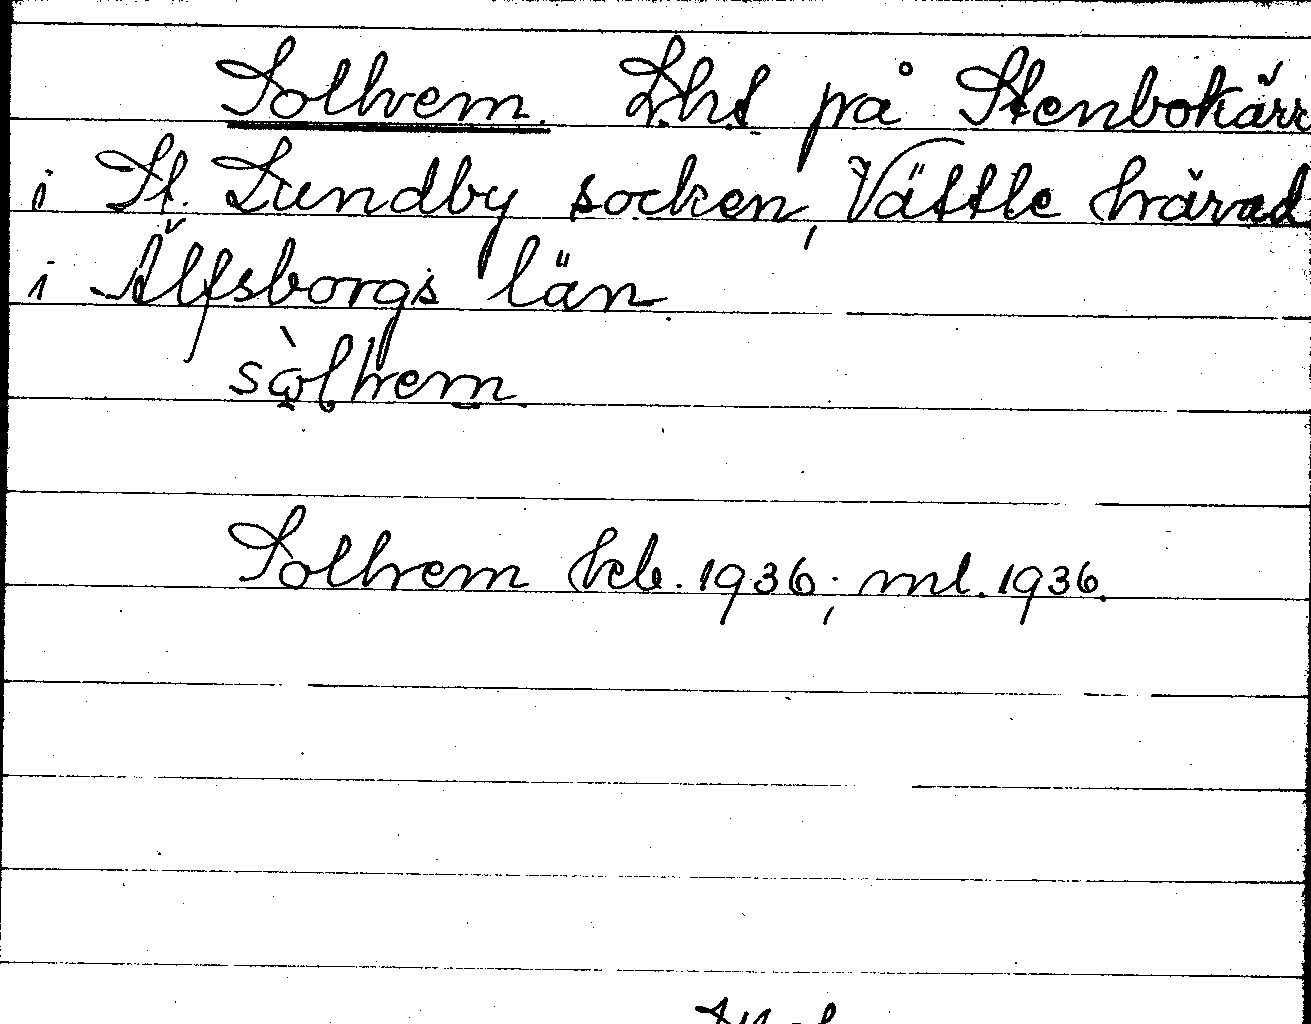 Solhem. Lht på Stenbokärr
i St. Lundby socken, Vättle härad
i Älfsborgs län.
sὼlhem
Solhem kb. 1936; ml. 1936.